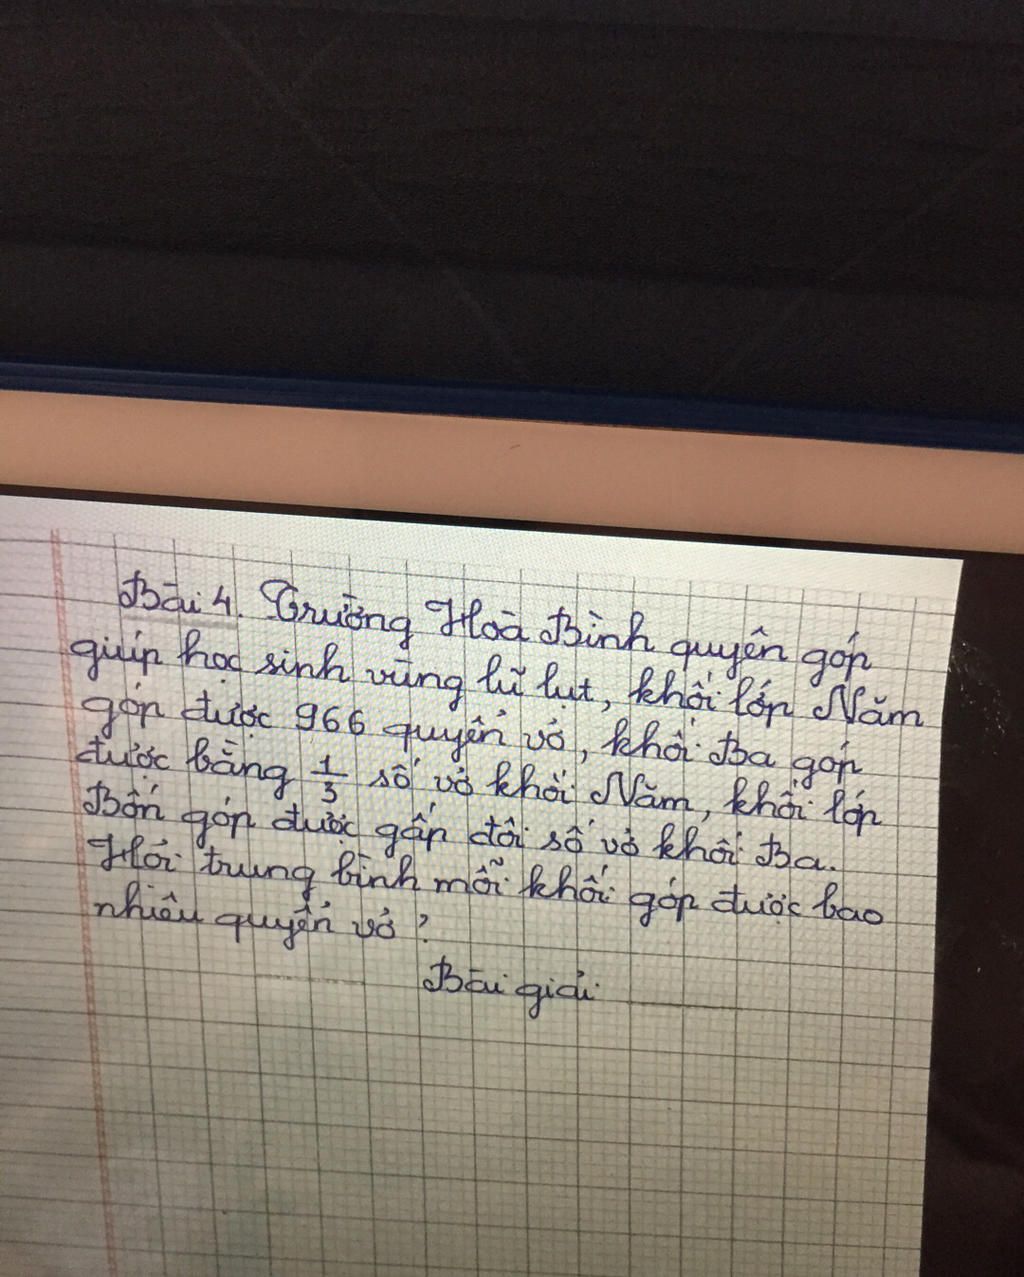 Bài 4. Trường Hoà Bình quyên góp
giúp học sinh vùng lũ lụt, khối lớp Năm
góp được 966 quyển vở, khối Ba góp
được bằng 1/3 số vở khối Năm, khối lớp
Bốn góp được gấp đôi số vở khối Ba.
Hỏi trung bình mỗi khối góp được bao
nhiêu quyển vở?
Bài giải